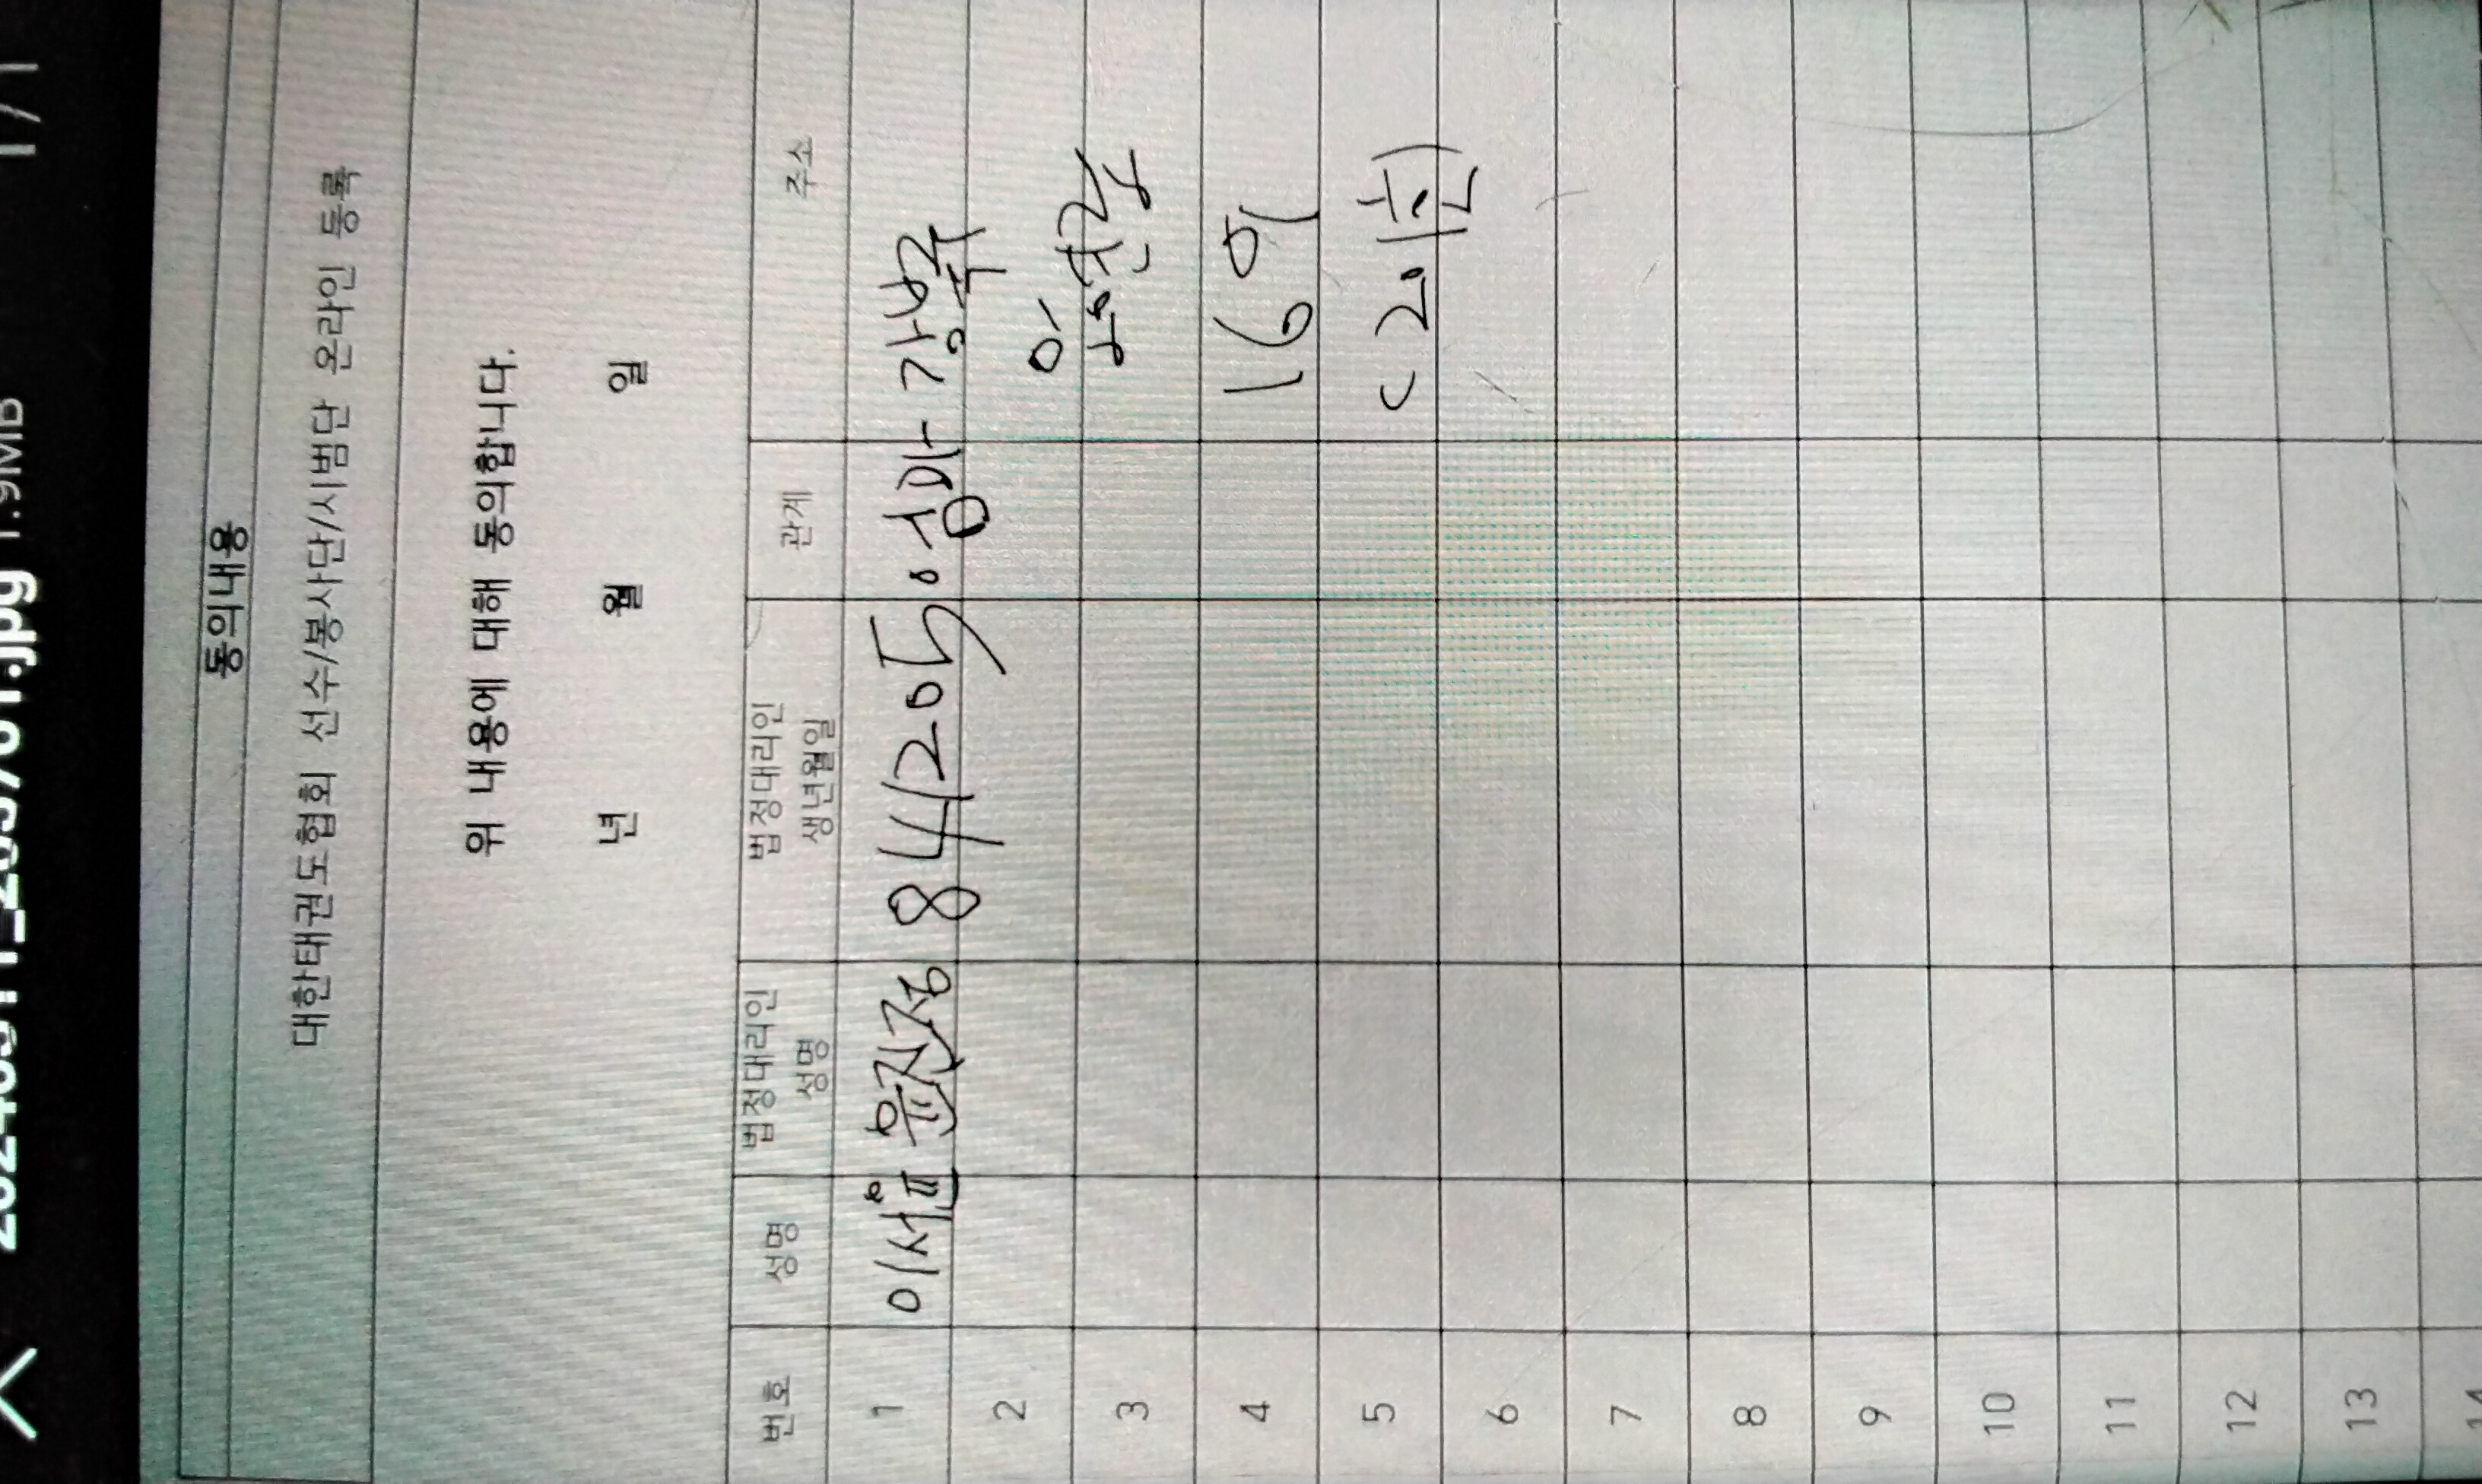 1.9MB 1/1
동의내용
대한태권도협회 선수/봉사단/시범단 온라인 등록
위 내용에 대해 동의합니다.
년 월 일
번호 성명 법정대리인 성명 법정대리인 생년월일 관계 주소
1 이서윤 윤진정 841205 엄마 강남구
2
3
4 16억
5
6
7
8
9
10
11
12
13
14